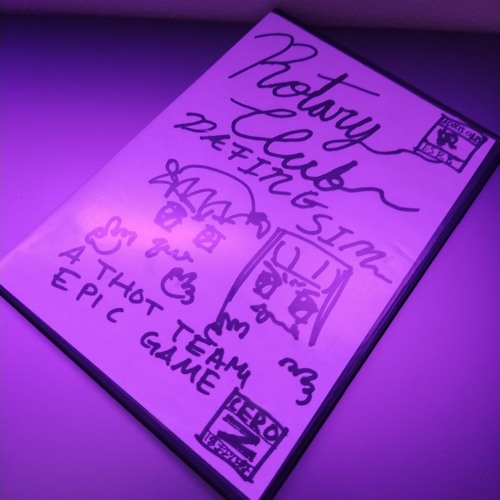 Rotary
Club
DATING
SIM
A THOT TEAM
EPIC GAME
ZERO
Z